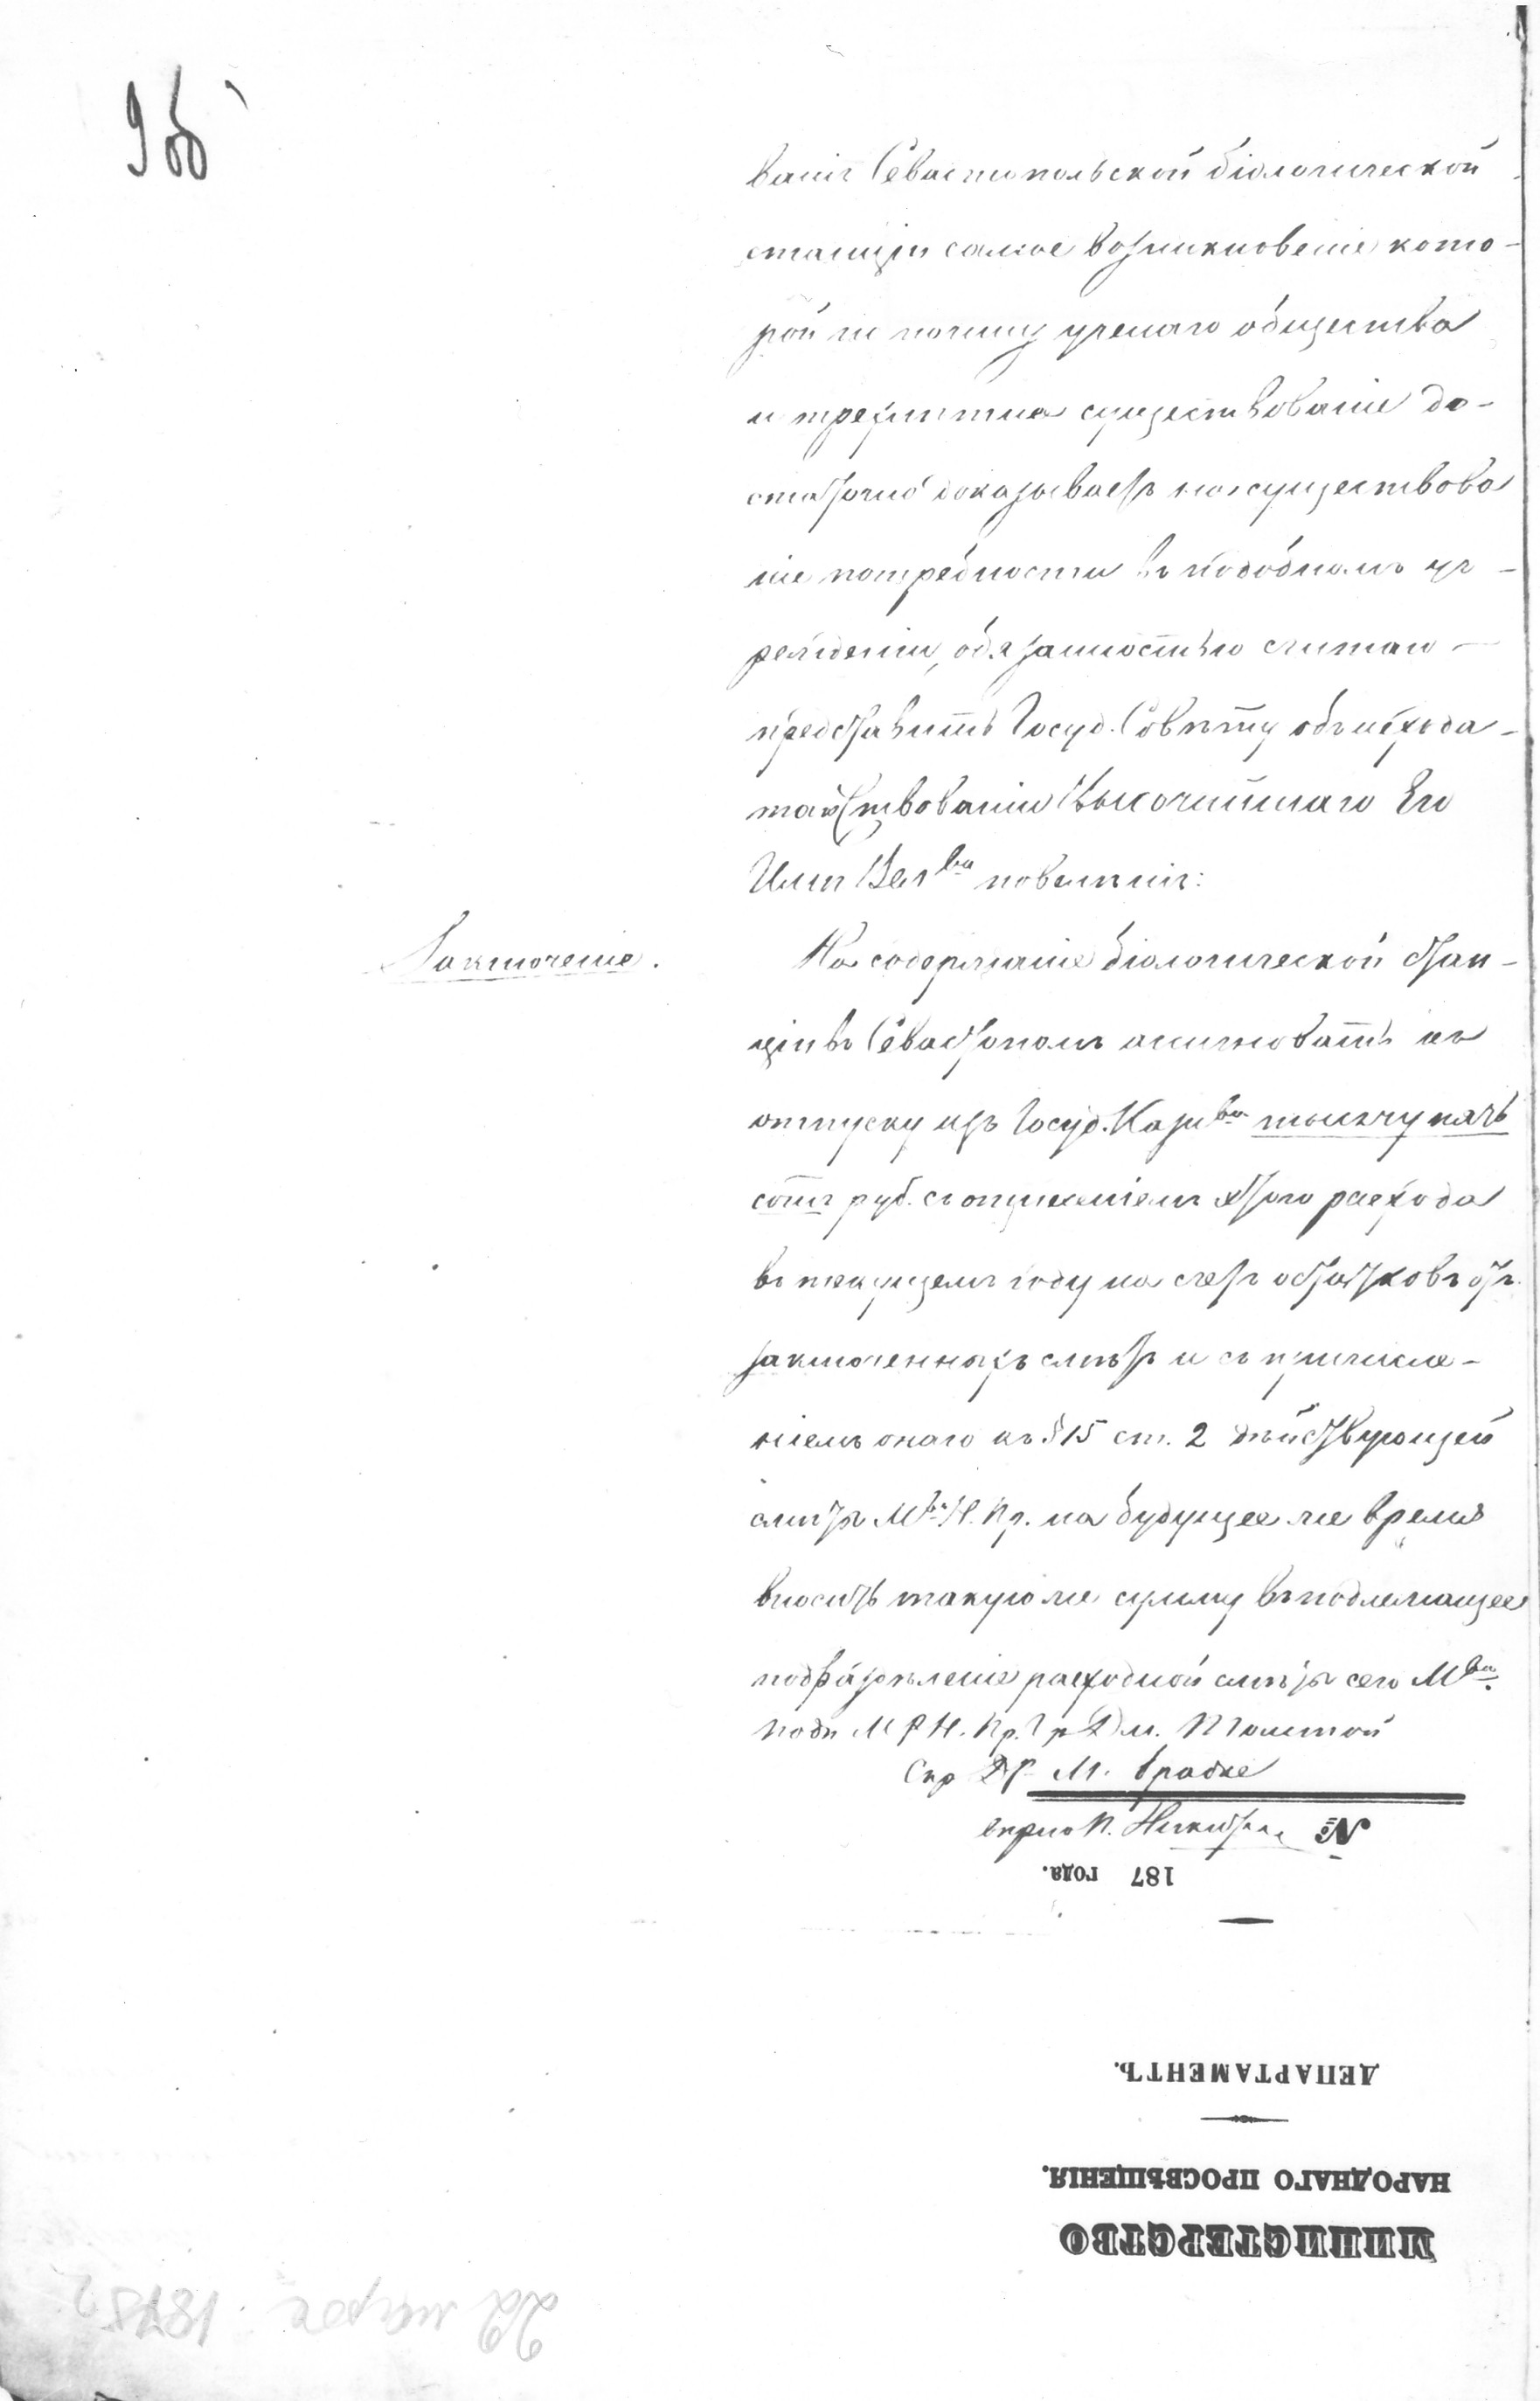 9 об
ванія Севастопольской біологической
станціи самое возникновеніе кото-
рой по почину ученаго общества
и трехлѣтнее существованіе до-
статочно доказываетъ на существова
ніе потребности въ подобномъ уч-
режденіи, обязанностью считаю
представить Госуд. Совѣту объ исхода-
тайствованіи Высочайшаго Его
Имп Вел ва повелѣнія:
Заключеніе.
На содержаніе біологической стан-
ціи въ Севастополѣ ассигновать къ
отпуску изъ Госуд. Казн ва тысячу пять
сотъ руб. съ отнесеніемъ этого расхода
въ текущемъ году на счетъ остатковъ отъ
заключенныхъ смѣтъ и съ причисле-
ніемъ онаго къ § 15 ст. 2 дѣйствующей
смѣты М ва Н. Пр. на будущее же время
вносить такую же сумму въ подлежащее
подраздѣленіе расходной смѣты сего М ва.
Подп М Н. Пр. Гр Дм. Толстой
Скр Д М. Брадке
Вѣрно П.
№
187 года.
ДЕПАРТАМЕНТЪ.
НАРОДНАГО ПРОСВѢЩЕНІЯ.
МИНИСТЕРСТВО
22 марта 1875 г